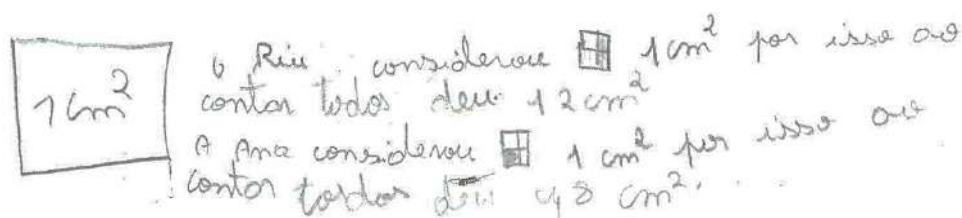 1 cm²
O Rui considerou 1 cm² por isso ao
contar todos deu 12 cm²
A Ana considerou 1 cm² por isso ao
contar todos deu 48 cm².